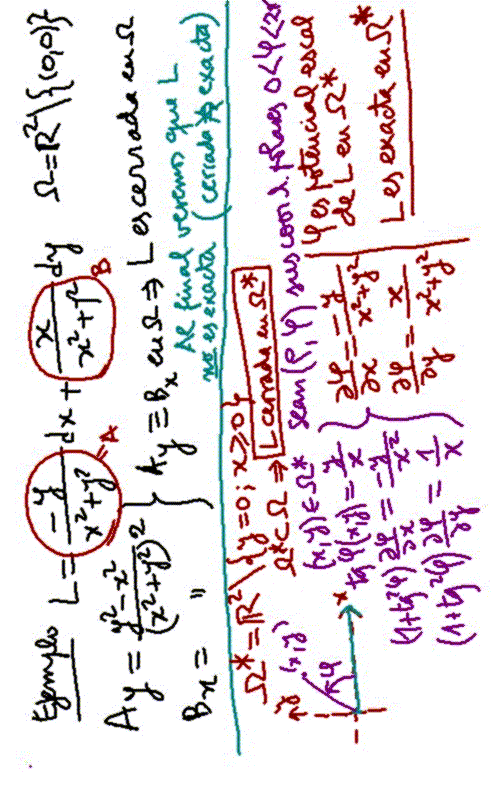 Ejemplo L = -y/(x²+y²) dx + x/(x²+y²) dy Ω = ℝ² \ {(0,0)}
= A B
Ay = (y²-x²)/(x²+y²)² } Ay ≡ Bx en Ω ⇒ L es cerrada en Ω
Bx = "
Al final veremos que L
no es exacta (cerrada ⇏ exacta)
Ω* = ℝ² \ {y=0; x≥0}
Ω* ⊂ Ω ⇒ L cerrada en Ω*
y (x,y) φ x
(x,y) ∈ Ω* sean (ρ,φ) sus coord. polares 0<φ<2π
tg φ(x,y) = y/x
(1+tg²φ) ∂φ/∂x = -y/x²
(1+tg²φ) ∂φ/∂y = 1/x
∂φ/∂x = -y/(x²+y²)
∂φ/∂y = x/(x²+y²)
φ es potencial escal
de L en Ω*
L es exacta en Ω*